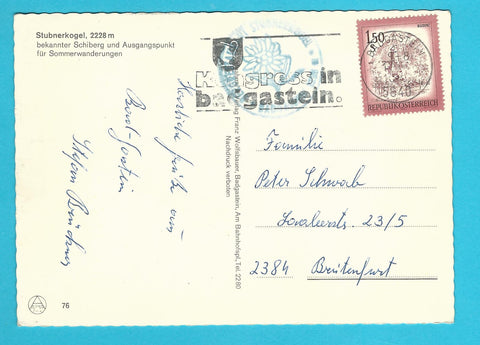 Stubnerkogel, 2228 m
bekannter Schiberg und Ausgangspunkt
für Sommerwanderungen
Kongress in
badgastein.
1.50
REPUBLIK ÖSTERREICH
Herzliche Grüße aus
Bad Gastein
Stefan
Familie
Peter Schwab
23/5
2384 Breitenfurt
Franz Wolfsbauer, Badgastein, Am Bahnhofspl., Tel. 2280
Nachdruck verboten
76